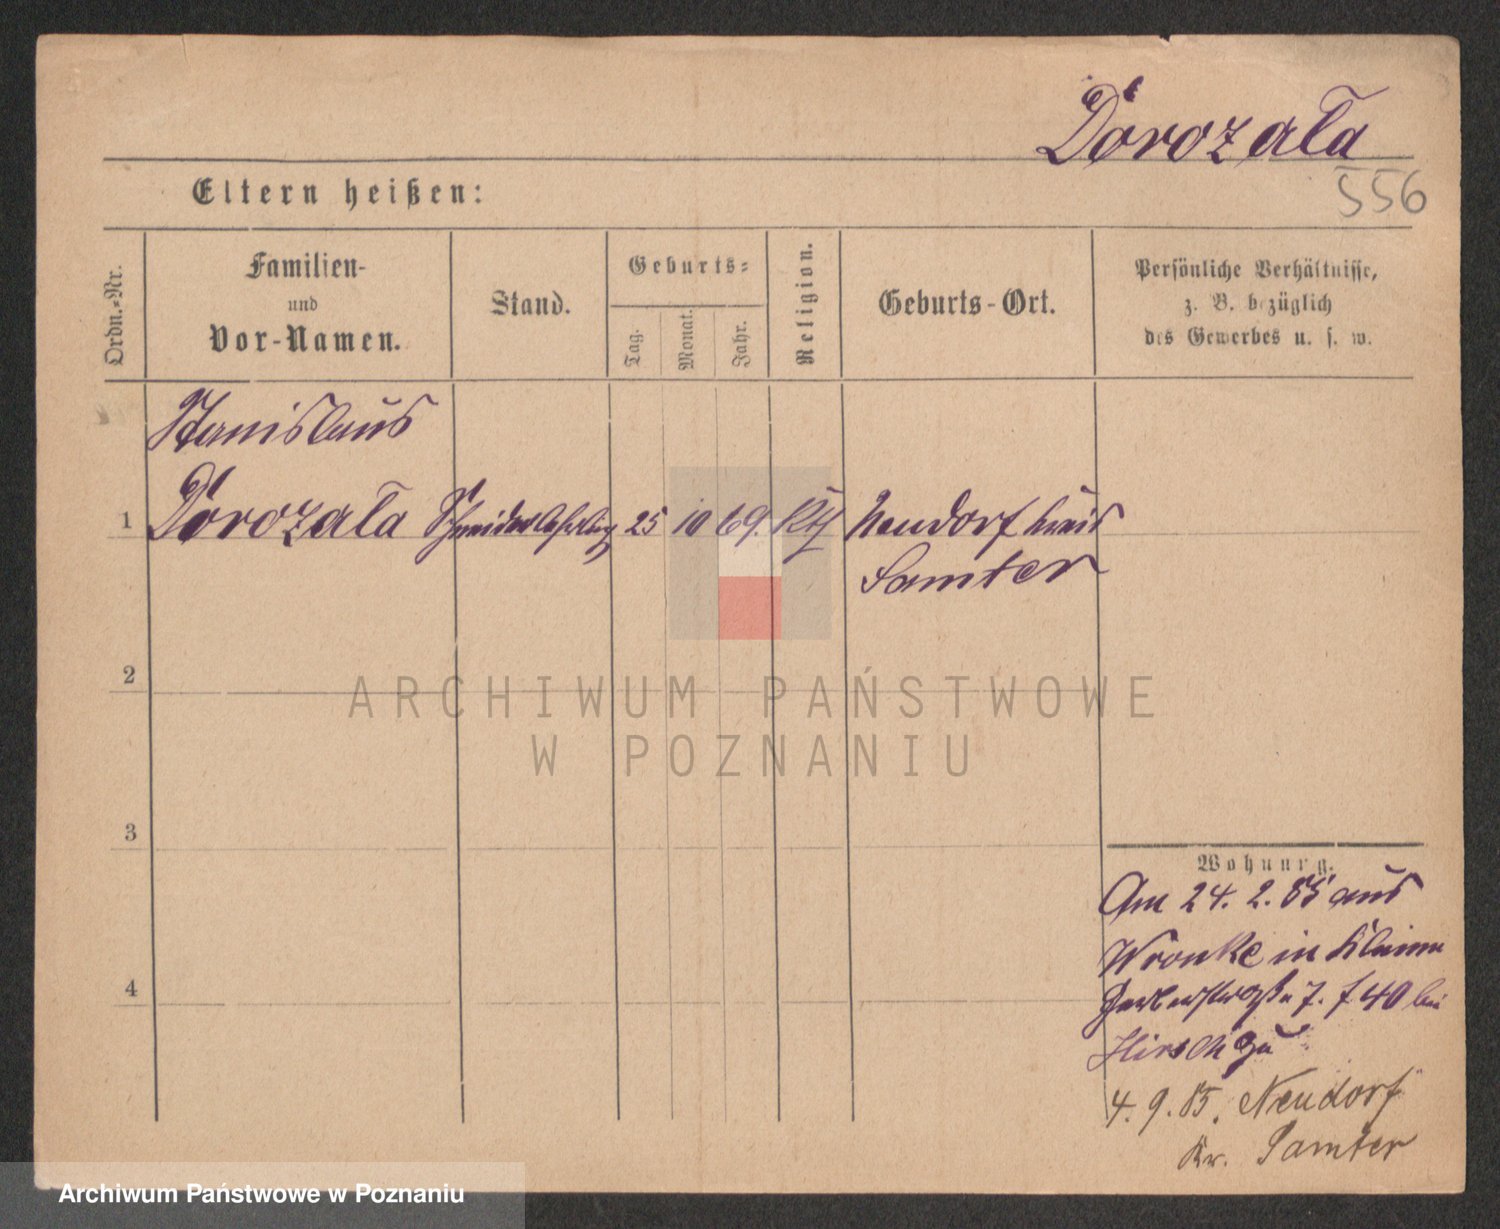 Dorozała
556
Eltern heißen:
Ordn.-Nr.
Familien-
und
Vor-Namen.
Stand.
Geburts-
Tag.
Monat.
Jahr.
Religion.
Geburts-Ort.
Persönliche Verhältnisse,
z. B. bezüglich
des Gewerbes u. s. w.
Stanislaus
1 Dorozała Schneiderlehrling 25 10 69. Kth Neudorf Kreis
Samter
2
ARCHIWUM PAŃSTWOWE
W POZNANIU
3
Wohnung.
Am 24. 2. 85 aus
Wronke in Kleine
4
Gerberstraße 7. f 40 bei
Hirsch zu
4. 9. 85. Neudorf
Kr. Samter
Archiwum Państwowe w Poznaniu